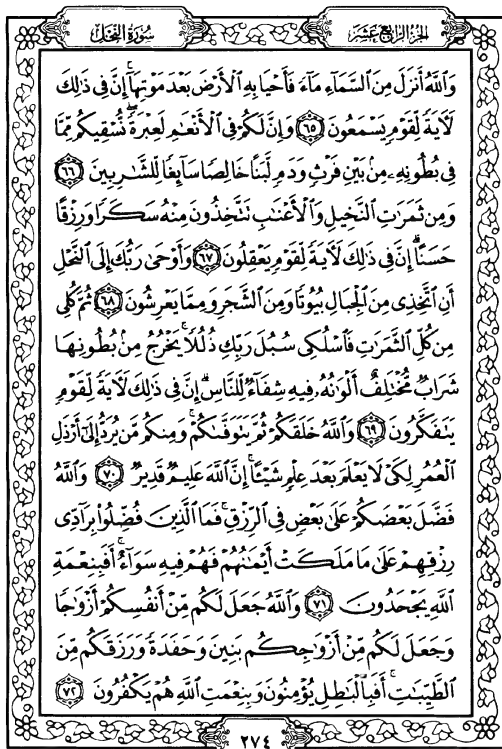 سُورَةُ النَّحْلِ
الجُزْءُ الرَّابِعَ عَشَرَ
وَاللَّهُ أَنزَلَ مِنَ السَّمَاءِ مَاءً فَأَحْيَا بِهِ الْأَرْضَ بَعْدَ مَوْتِهَا ۚ إِنَّ فِي ذَٰلِكَ
لَآيَةً لِّقَوْمٍ يَسْمَعُونَ ٦٥ وَإِنَّ لَكُمْ فِي الْأَنْعَٰمِ لَعِبْرَةً ۖ نُّسْقِيكُم مِّمَّا
فِي بُطُونِهِۦ مِنۢ بَيْنِ فَرْثٍ وَدَمٍ لَّبَنًا خَالِصًا سَآئِغًا لِّلشَّٰرِبِينَ ٦٦
وَمِن ثَمَرَٰتِ النَّخِيلِ وَالْأَعْنَٰبِ تَتَّخِذُونَ مِنْهُ سَكَرًا وَرِزْقًا
حَسَنًا ۗ إِنَّ فِي ذَٰلِكَ لَآيَةً لِّقَوْمٍ يَعْقِلُونَ ٦٧ وَأَوْحَىٰ رَبُّكَ إِلَى النَّحْلِ
أَنِ اتَّخِذِي مِنَ الْجِبَالِ بُيُوتًا وَمِنَ الشَّجَرِ وَمِمَّا يَعْرِشُونَ ٦٨ ثُمَّ كُلِي
مِن كُلِّ الثَّمَرَٰتِ فَاسْلُكِي سُبُلَ رَبِّكِ ذُلُلًا ۚ يَخْرُجُ مِنۢ بُطُونِهَا
شَرَابٌ مُّخْتَلِفٌ أَلْوَٰنُهُۥ فِيهِ شِفَآءٌ لِّلنَّاسِ ۗ إِنَّ فِي ذَٰلِكَ لَآيَةً لِّقَوْمٍ
يَتَفَكَّرُونَ ٦٩ وَاللَّهُ خَلَقَكُمْ ثُمَّ يَتَوَفَّىٰكُمْ ۚ وَمِنكُم مَّن يُرَدُّ إِلَىٰٓ أَرْذَلِ
الْعُمُرِ لِكَيْ لَا يَعْلَمَ بَعْدَ عِلْمٍ شَيْـًٔا ۚ إِنَّ اللَّهَ عَلِيمٌ قَدِيرٌ ٧٠ وَاللَّهُ
فَضَّلَ بَعْضَكُمْ عَلَىٰ بَعْضٍ فِي الرِّزْقِ ۚ فَمَا الَّذِينَ فُضِّلُوا۟ بِرَآدِّي
رِزْقِهِمْ عَلَىٰ مَا مَلَكَتْ أَيْمَٰنُهُمْ فَهُمْ فِيهِ سَوَآءٌ ۚ أَفَبِنِعْمَةِ
اللَّهِ يَجْحَدُونَ ٧١ وَاللَّهُ جَعَلَ لَكُم مِّنْ أَنفُسِكُمْ أَزْوَٰجًا
وَجَعَلَ لَكُم مِّنْ أَزْوَٰجِكُم بَنِينَ وَحَفَدَةً وَرَزَقَكُم مِّنَ
الطَّيِّبَٰتِ ۚ أَفَبِالْبَٰطِلِ يُؤْمِنُونَ وَبِنِعْمَتِ اللَّهِ هُمْ يَكْفُرُونَ ٧٢
٢٧٤